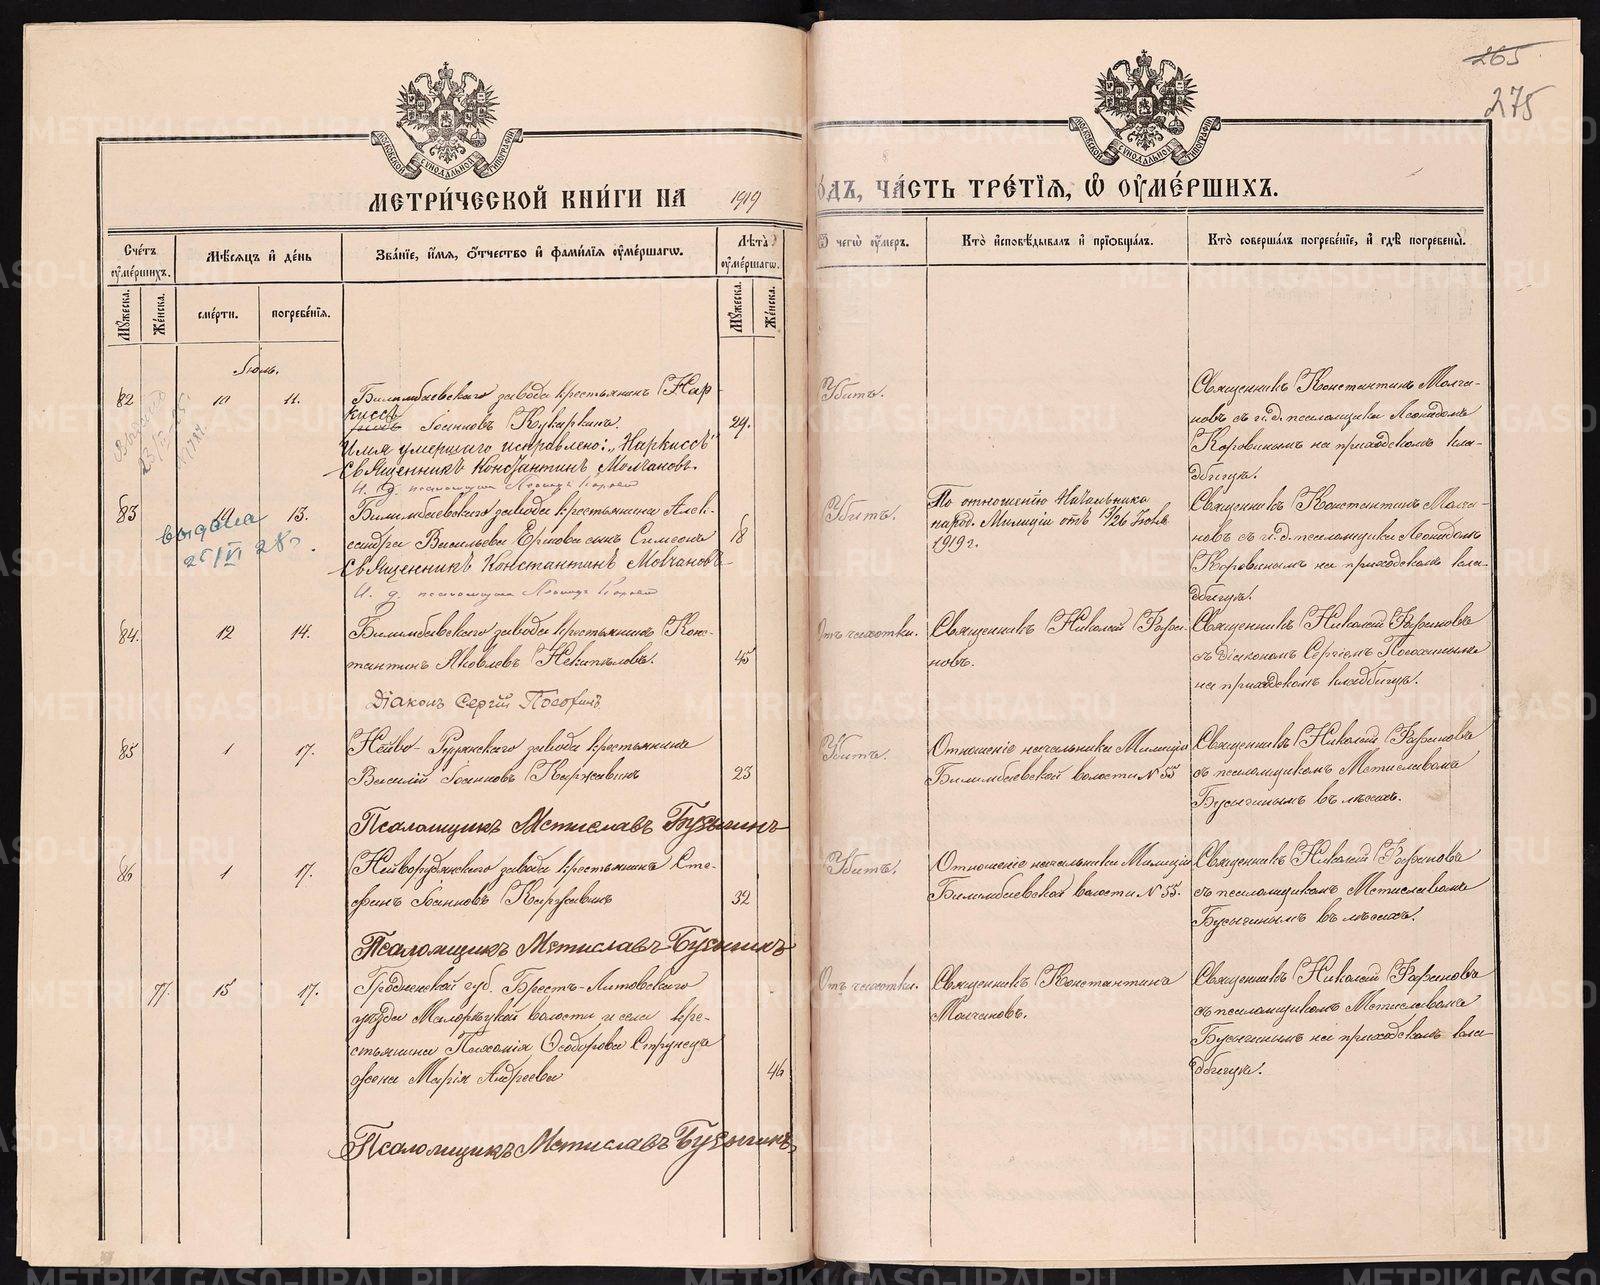 265
275
МЕТРИ́ЧЕСКОЙ КНИ́ГИ НА 1919
ГО́ДЪ, ЧА́СТЬ ТРЕ́ТІѦ, Ѽ ОУ҆МЕ́РШИХЪ.
Сче́тъ оу҆ме́ршихъ.
Мꙋ́жеска.
Же́нска.
Мѣ́сѧцъ и҆ де́нь
сме́рти.
погребе́нїѧ.
Зва́нїе, и҆́мѧ, ѻ҆́тчество и҆ фамилїѧ оу҆ме́ршагѡ.
Лѣ́та оу҆ме́ршагѡ.
Мꙋ́жеска.
Же́нска.
Ѿ чегѡ̀ оу҆́меръ.
Кто̀ и҆сповѣ́дывалъ и҆ прїѡбща́лъ.
Кто̀ соверша́лъ погребе́нїе, и҆ гдѣ̀ погребены̀.
Іюль.
82
10
11.
Билимбаевскаго завода крестьянинъ Нар-
киссъ
Іоанновъ Кукаркинъ.
Имя умершаго исправлено: "Наркиссъ"
Священникъ Константинъ Молчановъ.
И. д. псаломщика Леонидъ Коровинъ
29.
Убитъ.
Священникъ Константинъ Молча-
новъ съ и. д. псаломщика Леонидомъ
Коровинымъ на приходскомъ кла-
дбищѣ.
Выдано
83
10
13.
выдана
25/VI 28 г.
Билимбаевскаго завода крестьянина Алек-
сандра Васильева Ермова сынъ Симеонъ
Священникъ Константинъ Молчановъ
И. д. псаломщика Леонидъ Коровинъ
18
Убитъ.
По отношенію Начальника
народ. Милиціи отъ 13/26 Іюля
1919 г.
Священникъ Константинъ Молча-
новъ съ и. д. псаломщика Леонидомъ
Коровинымъ на приходскомъ кла-
дбищѣ.
84.
12
14.
Билимбаевскаго завода крестьянинъ Конс-
тантинъ Яковлевъ Некипѣловъ.
Діаконъ Сергій
45
Отъ чахотки.
Священникъ Николай
новъ.
Священникъ Николай
съ діакономъ Сергіемъ
на приходскомъ кладбищѣ.
85
1
17.
Нейво-Рудянскаго завода крестьянинъ
Василій Іоанновъ Каржавинъ
Псаломщикъ Мстиславъ Бусыгинъ
23
Убитъ.
Отношеніе начальника Милиціи
Билимбаевской волости № 55
Священникъ Николай
съ псаломщикомъ Мстиславомъ
Бусыгинымъ въ лѣсахъ.
86
1
17.
Нейворудянскаго завода крестьянинъ Сте-
фанъ Іоанновъ Каржавинъ
Псаломщикъ Мстиславъ Бусыгинъ
32
Убитъ.
Отношеніе начальника Милиціи
Билимбаевской волости № 55.
Священникъ Николай
съ псаломщикомъ Мстиславомъ
Бусыгинымъ въ лѣсахъ.
77.
15
17.
Гродненской губ. Брестъ-Литовскаго
уѣзда Малорытской волости и села кре-
стьянина Пахомія Ѳеодорова Струнеца
жена Марія Андреева
Псаломщикъ Мстиславъ Бусыгинъ
46
Отъ чахотки.
Священникъ Константинъ
Молчановъ.
Священникъ Николай
съ псаломщикомъ Мстиславомъ
Бусыгинымъ на приходскомъ кла-
дбищѣ.
METRIKI.GASO-URAL.RU